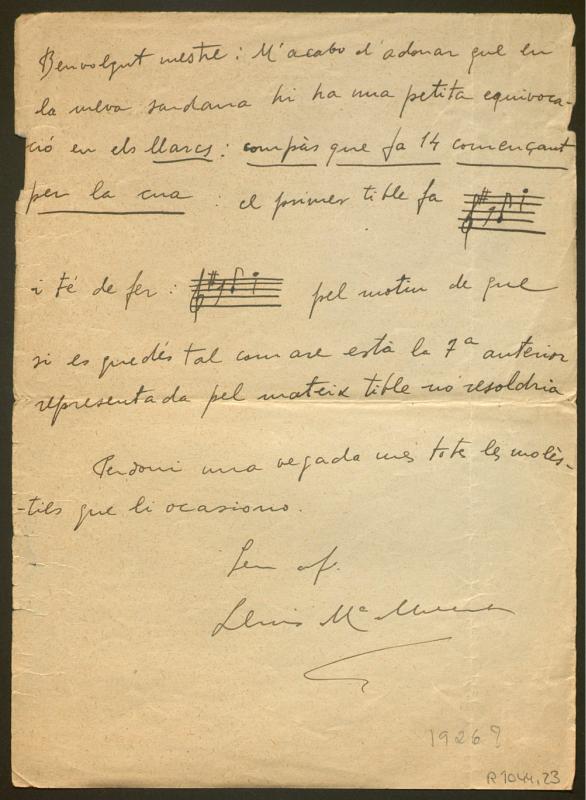 Benvolgut mestre: M'acabo d'adonar que en
la meva sardana hi ha una petita equivoca-
ció en els llargs: compàs que fa 14 començant
per la cua : el primer tible fa
i té de fer: pel motiu de que
si es quedés tal com are està la 7ª anterior
representada pel mateix tible no resoldria
Perdoni una vegada més tots les molès-
-ties que li ocasiono.
Seu af.
Lluis Mª
1926?
R 1044,23